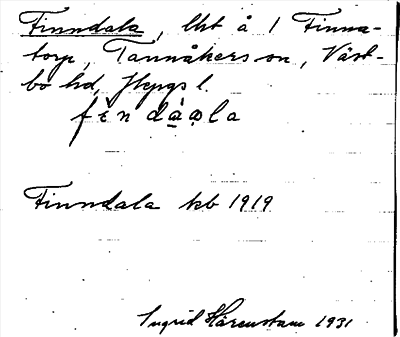 Finndala, lht å 1 Finna-
torp, Tannåkers sn, Väst-
bo hd,
Finndala kb 1919
Ingrid Härenstam 1931